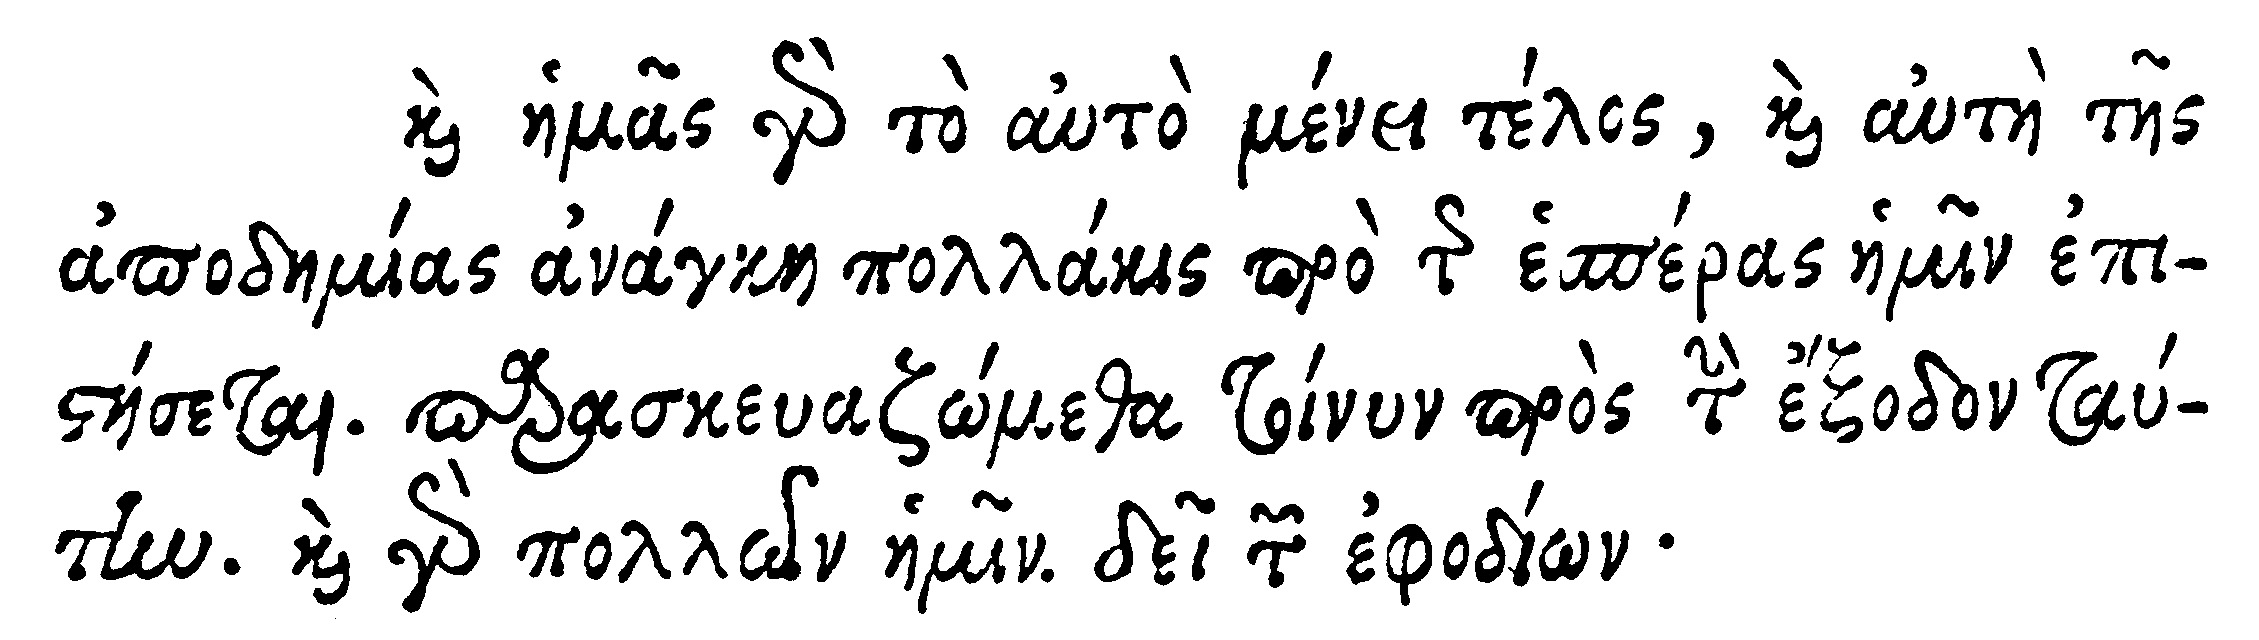 καὶ ἡμᾶς γὰρ τὸ αὐτὸ μένει τέλος, καὶ αὐτὴ τῆς
ἀποδημίας ἀνάγκη πολλάκις πρὸ τῆς ἑσπέρας ἡμῖν ἐπι-
στήσεται. παρασκευαζώμεθα τοίνυν πρὸς τὴν ἔξοδον ταύ-
την. καὶ γὰρ πολλῶν ἡμῖν. δεῖ τῶν ἐφοδίων·